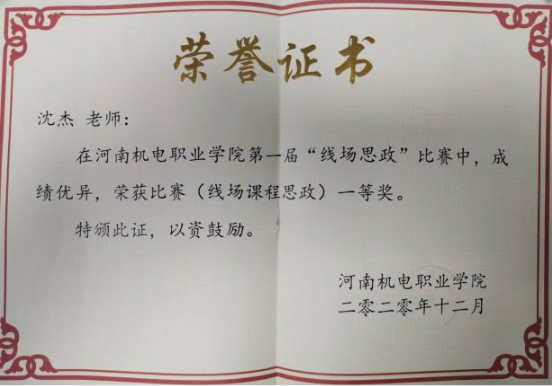 荣誉证书
沈杰 老师：
在河南机电职业学院第一届“线场思政”比赛中，成
绩优异，荣获比赛（线场课程思政）一等奖。
特颁此证，以资鼓励。
河南机电职业学院
二零二零年十二月